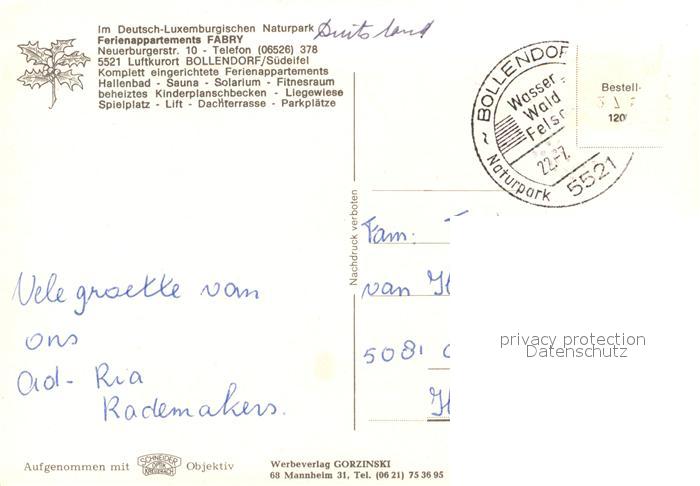 Im Deutsch-Luxemburgischen Naturpark
Duitsland
Ferienappartements FABRY
Neuerburgerstr. 10 - Telefon (06526) 378
5521 Luftkurort BOLLENDORF/Südeifel
Komplett eingerichtete Ferienappartements
Hallenbad - Sauna - Solarium - Fitnesraum
beheiztes Kinderplanschbecken - Liegewiese
Spielplatz - Lift - Dachterrasse - Parkplätze
BOLLENDORF
Wasser
Wald
Fels
22.-7.
~ Naturpark 5521
Bestell-
120
Nachdruck verboten
Fam.
van
5081
Vele groetke van
ons
Ad - Ria
Rademakers.
privacy protection
Datenschutz
Aufgenommen mit SCHNEIDER OPTIK KREUZNACH Objektiv
Werbeverlag GORZINSKI
68 Mannheim 31, Tel. (06 21) 75 36 95